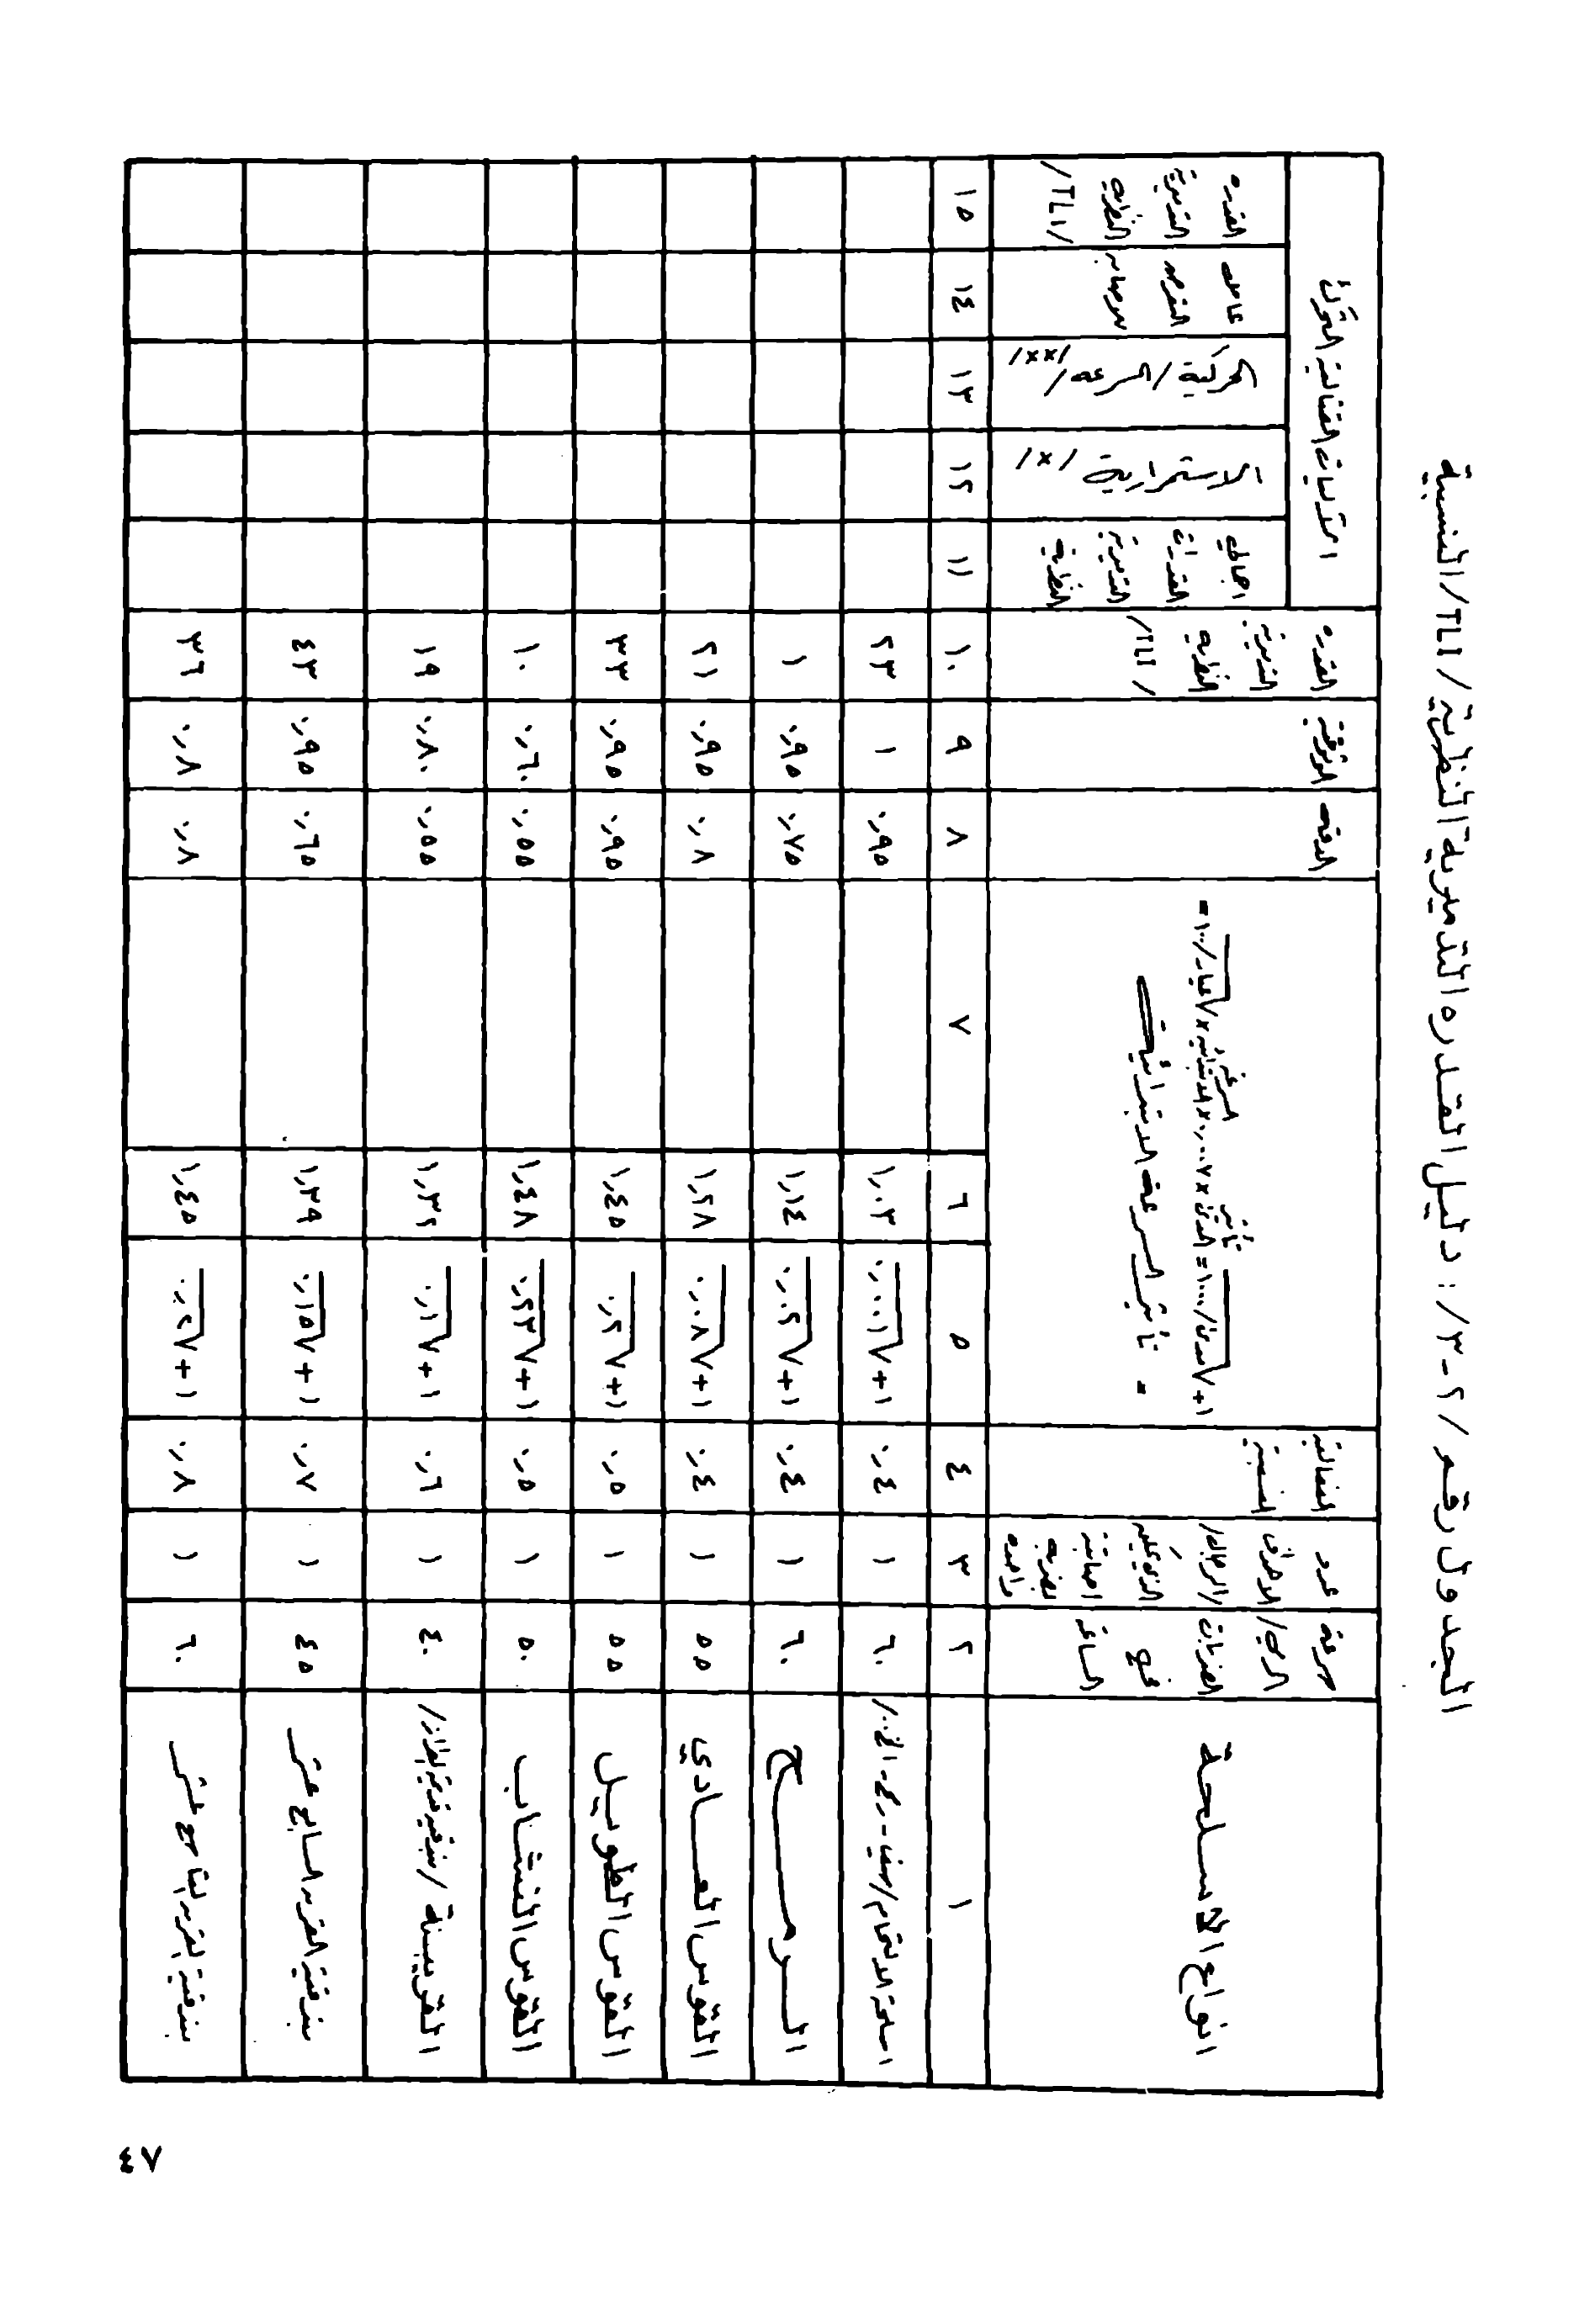 الجدول رقم /٢-٣/: دليل القدره التدميرية النظرية /TLI/ النسبية
انواع الاسلحة
سرعة الرمي/ الضربات في الساعة
عدد الاهداف /الرجال/ الذي يمكن اصابته بضربه واحده
الفعالية النسبية
١+√مدى/١٠٠٠ = تأثير المدى × ٠٫٠٠٧ × السرعة الابتدائية × √عيار/١٠٠ =
= تأثير السرعة الابتدائية
الدقة
الوثوقية
القدره التدميرية النظرية /TLI/
الآليات القتالية
اجمالي القدرات التدميرية النظرية
الاستمرارية /×/
الحركية /السرعه/ /××/
القدره التدميرية النظرية /TLI/
١ ٢ ٣ ٤ ٥ ٦ ٧ ٨ ٩ ١٠ ١١ ١٢ ١٣ ١٤ ١٥
اسلحة الالتحام/سيف - رمح - الخ../ ٦٠ ١ ٠٫٤ ١+√٠٫٠٠١ ١٫٠٣ ٠٫٩٥ ١ ٢٣
الرمح ٦٠ ١ ٠٫٤ ١+√٠٫٠٢ ١٫١٤ ٠٫٧٥ ٠٫٩٥ ١
القوس العادي ٥٥ ١ ٠٫٤ ١+√٠٫٠٨ ١٫٢٨ ٠٫٨ ٠٫٩٥ ٢١
القوس الطويل ٥٥ ١ ٠٫٥ ١+√٠٫٢ ١٫٤٥ ٠٫٩٥ ٠٫٩٥ ٣٣
القوس النشاب ٥٠ ١ ٠٫٥ ١+√٠٫٢٣ ١٫٤٨ ٠٫٥٥ ٠٫٦٠ ١٠
القربينة /بندقية قديمة الطراز/ ٤٠ ١ ٠٫٦ ١+√٠٫١ ١٫٣٢ ٠٫٥٥ ٠٫٨٠ ١٩
بندقية القرن السابع عشر ٤٥ ١ ٠٫٧ ١+√٠٫١٥ ١٫٣٩ ٠٫٦٥ ٠٫٩٥ ٤٣
بندقية القرن التاسع عشر ٦٠ ١ ٠٫٨ ١+√٠٫٢ ١٫٤٥ ٠٫٨ ٠٫٨ ٣٦
٤٧